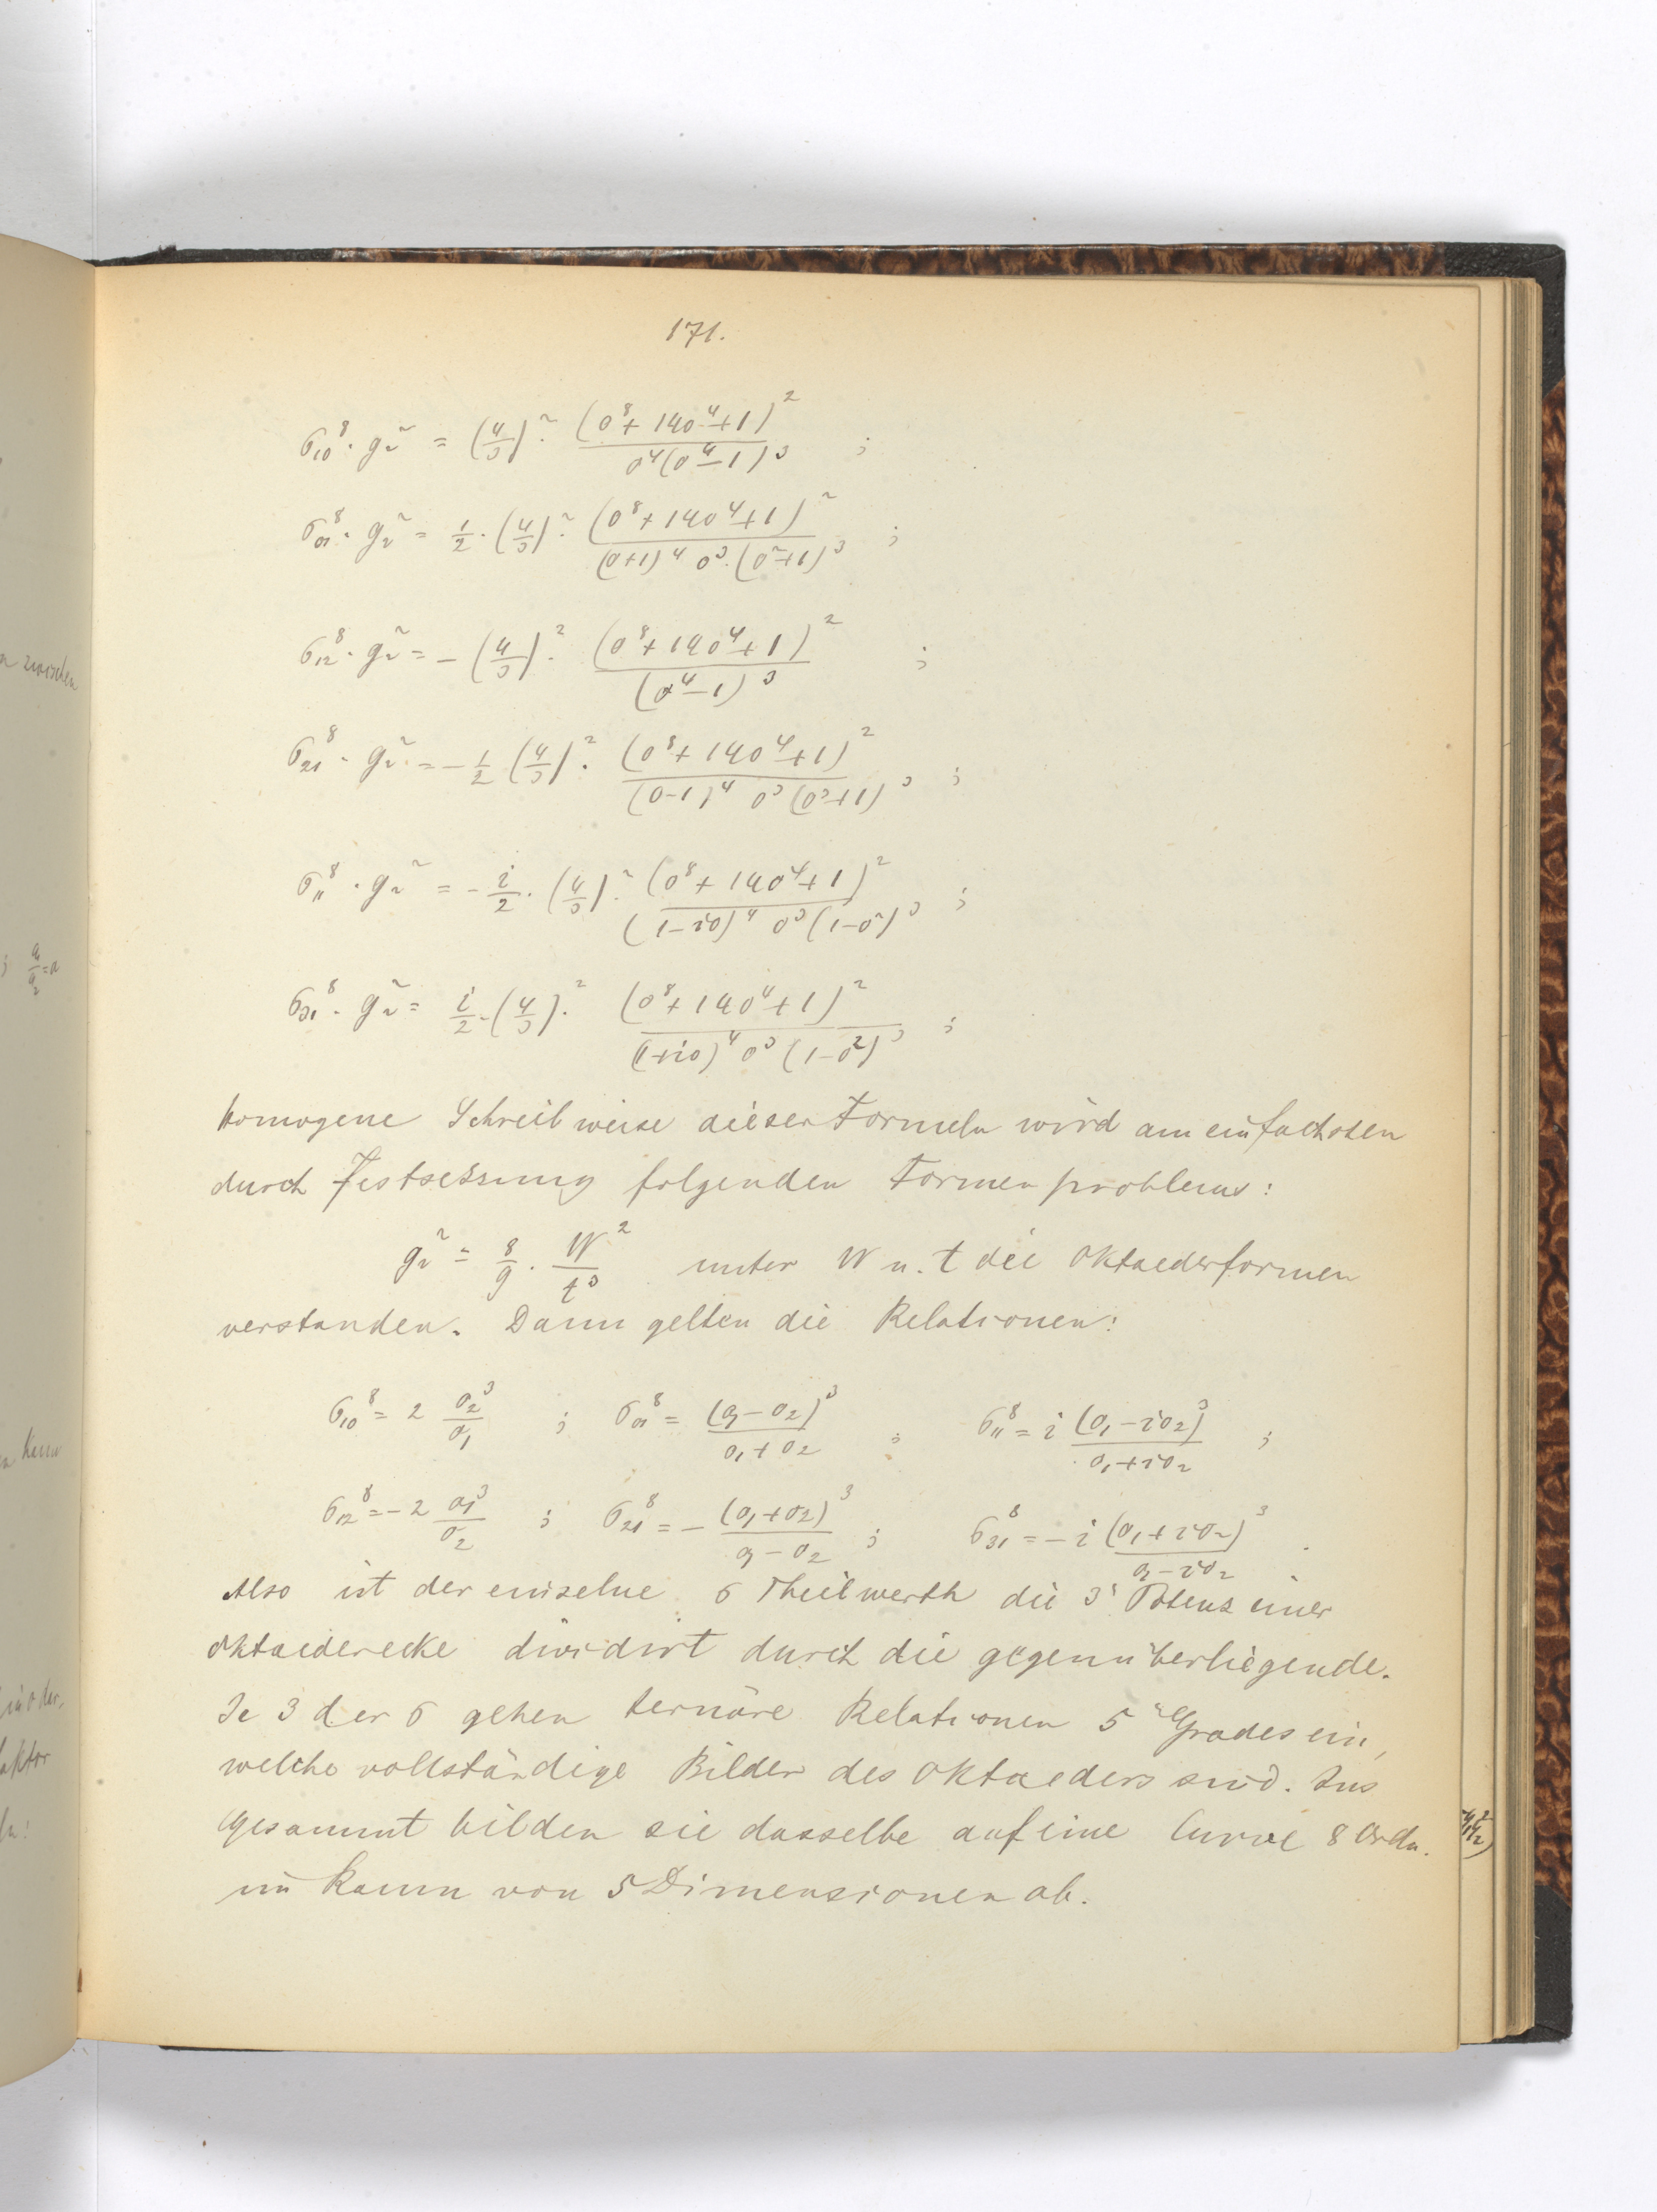 171.
σ₁₀⁸ · g₂² = (4/3)² · (o⁸ + 14o⁴ + 1)² / o⁴(o⁴ – 1)³ ;
σ₀₁⁸ · g₂² = 1/2 · (4/3)² · (o⁸ + 14o⁴ + 1)² / (o+1)⁴ o³ · (o² + 1)³ ;
σ₁₂⁸ · g₂² = – (4/3)² · (o⁸ + 14o⁴ + 1)² / (o⁴ – 1)³ ;
σ₂₁⁸ · g₂² = – 1/2 (4/3)² · (o⁸ + 14o⁴ + 1)² / (o–1)⁴ o³ (o² + 1)³ ;
σ₁₁⁸ · g₂² = – i/2 · (4/3)² · (o⁸ + 14o⁴ + 1)² / (1 – io)⁴ o³ (1 – o²)³ ;
σ₃₁⁸ · g₂² = i/2 · (4/3)² · (o⁸ + 14o⁴ + 1)² / (1 + io)⁴ o³ (1 – o²)³ ;
Homogene Schreibweise dieser Formeln wird am einfachsten
durch Festsetzung folgenden Formenproblems:
g₂² = 8/9 · W² / t³ unter W u. t die Oktaederformen
verstanden. Dann gelten die Relationen:
σ₁₀⁸ = 2 o₂³/o₁ ; σ₀₁⁸ = (o₁ – o₂)³ / o₁ + o₂ ; σ₁₁⁸ = i (o₁ – io₂)³ / o₁ + io₂ ;
σ₁₂⁸ = – 2 o₁³/o₂ ; σ₂₁⁸ = – (o₁ + o₂)³ / o₁ – o₂ ; σ₃₁⁸ = – i (o₁ + io₂)³ / o₁ – io₂ .
Also ist der einzelne σ Theilwerth die 3ᵗ Potenz einer
Oktaederecke dividirt durch die gegenüberliegende.
Je 3 der σ gehen ternäre Relationen 5ᵗᵉⁿ Grades ein,
welche vollständige Bilder des Oktaeders sind. Ins
gesammt bilden sie dasselbe auf eine Curve 8 Ordn.
im Raum von 5 Dimensionen ab.